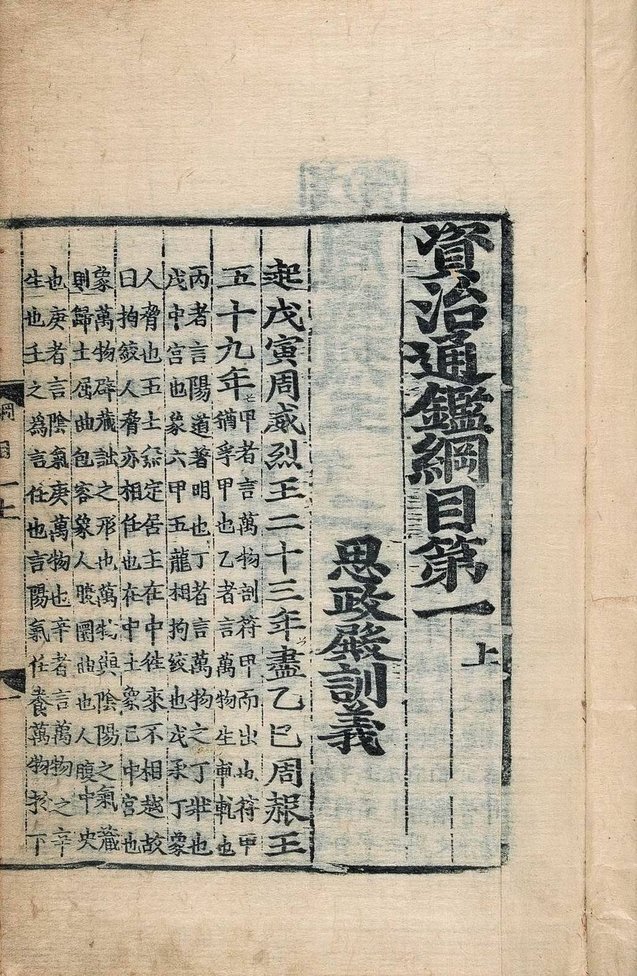 資治通鑑綱目第一上
思政殿訓義
起戊寅周威烈王二十三年盡乙巳周赧王
五十九年
甲者言萬物剖符甲而出也符甲
猶孚甲也乙者言萬物生軋軋也
丙者言陽道著明也丁者言萬物之丁壯也
戊中宮也象六甲五龍相拘絞也戊承丁象
人脅也五土定居主在中徃來不相越故
曰拘絞人脅亦相任也在中土象己中宮也
象萬物辟藏詘之形也萬物與陰陽之氣藏
則歸土屈曲包容象人腹圜曲也人腹中央
也庚者言陰氣庚萬物也辛者言萬物之辛
生也壬之為言任也言陽氣任養萬物於下
綱目一上